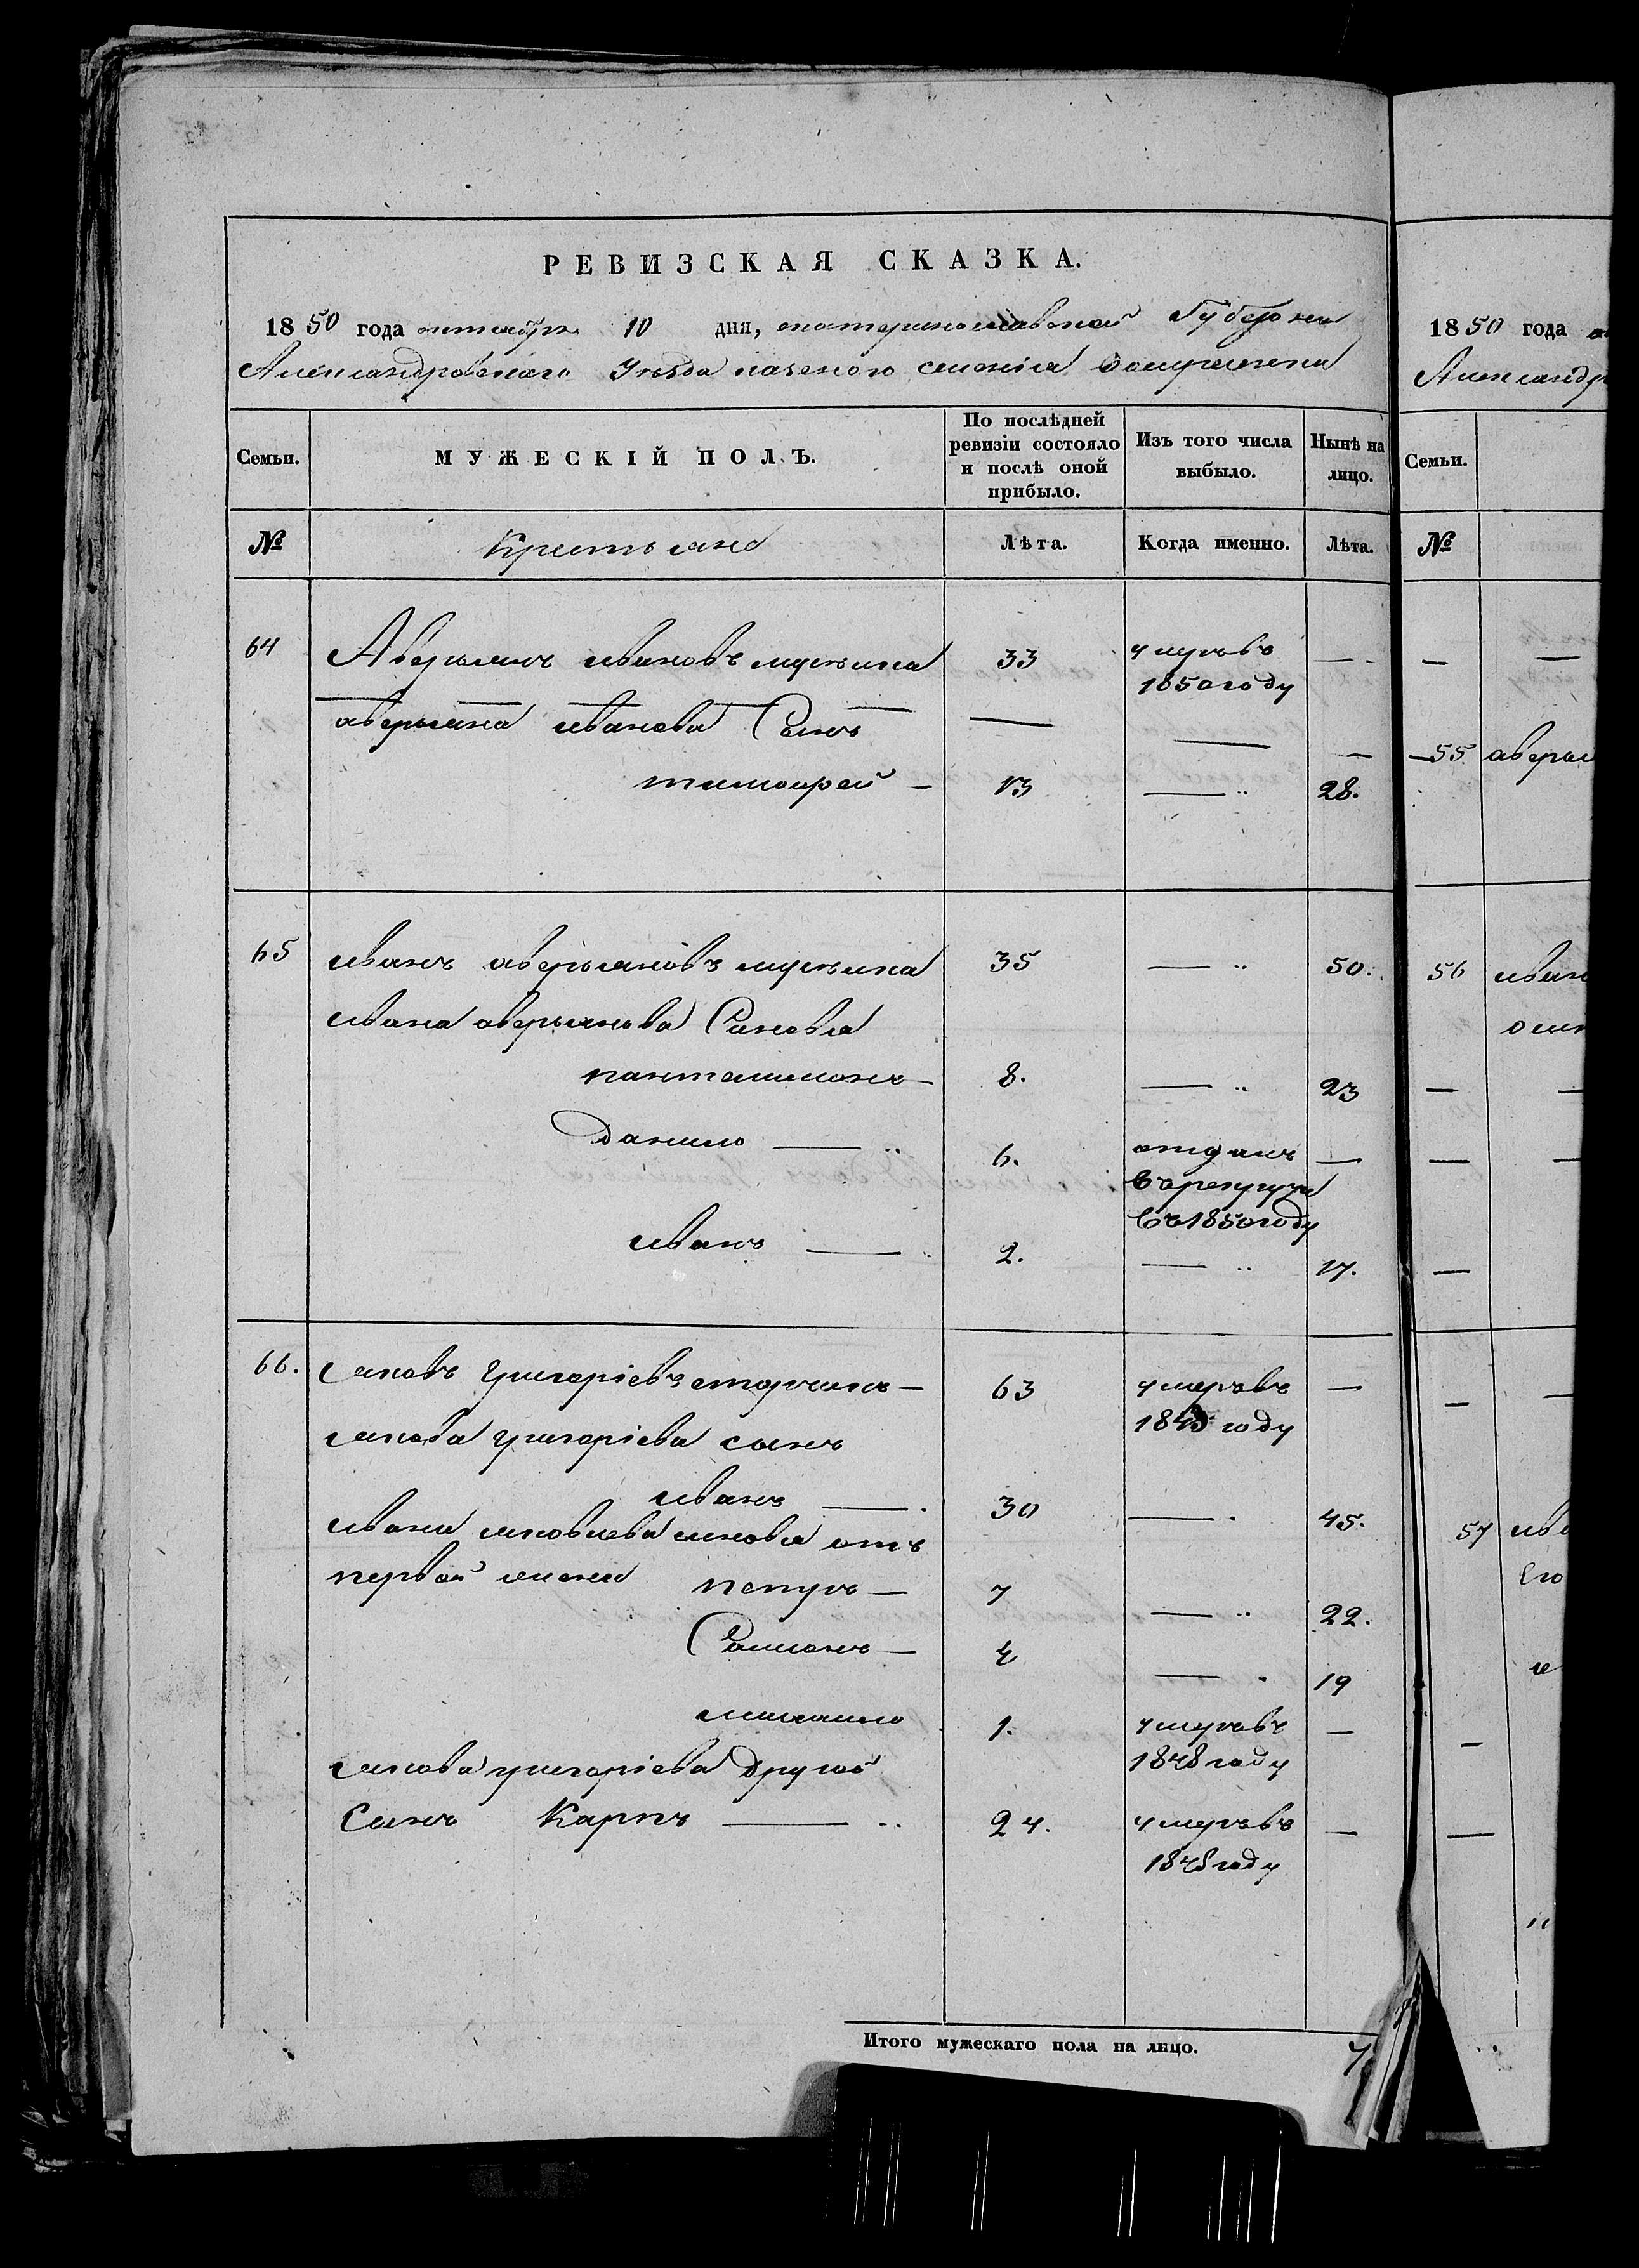 РЕВИЗСКАЯ СКАЗКА.
1850 года октября 10 дня, екатеринославской Губернии
Александровскаго Уезда казенного селенія
Семьи.
МУЖЕСКІЙ ПОЛЪ.
По послѣдней ревизіи состояло и послѣ оной прибыло.
Изъ того числа выбыло.
Нынѣ на лицо.
№
Крестьяне
Лѣта.
Когда именно.
Лѣта.
64 Аверьянъ ивановъ 33 умеръ въ —
1850 году
аверьяна иванова Сынъ — — —
тимофей — 13 — 28.
65 иванъ аверьяновъ 35 — 50.
ивана аверьянова Синовья
пантелимонъ — 8. — 23
данило — 6. отданъ —
в рекруты
въ 1850 году
иванъ — 2. — 17.
66. яковъ григоріевъ 63 умеръ въ —
году
якова григоріева сынъ
иванъ — 30 — 45.
ивана яковлева синовя отъ
первой жени петръ — 7 — 22.
Самонъ — 4 — 19
михаило 1. умеръ въ —
1848 году
якова григоріева другой
Сынъ Карпъ — 24. умеръ въ —
1848 году
Итого мужескаго пола на лицо. 7
1850 года
Семьи.
№
55
56 иван
57